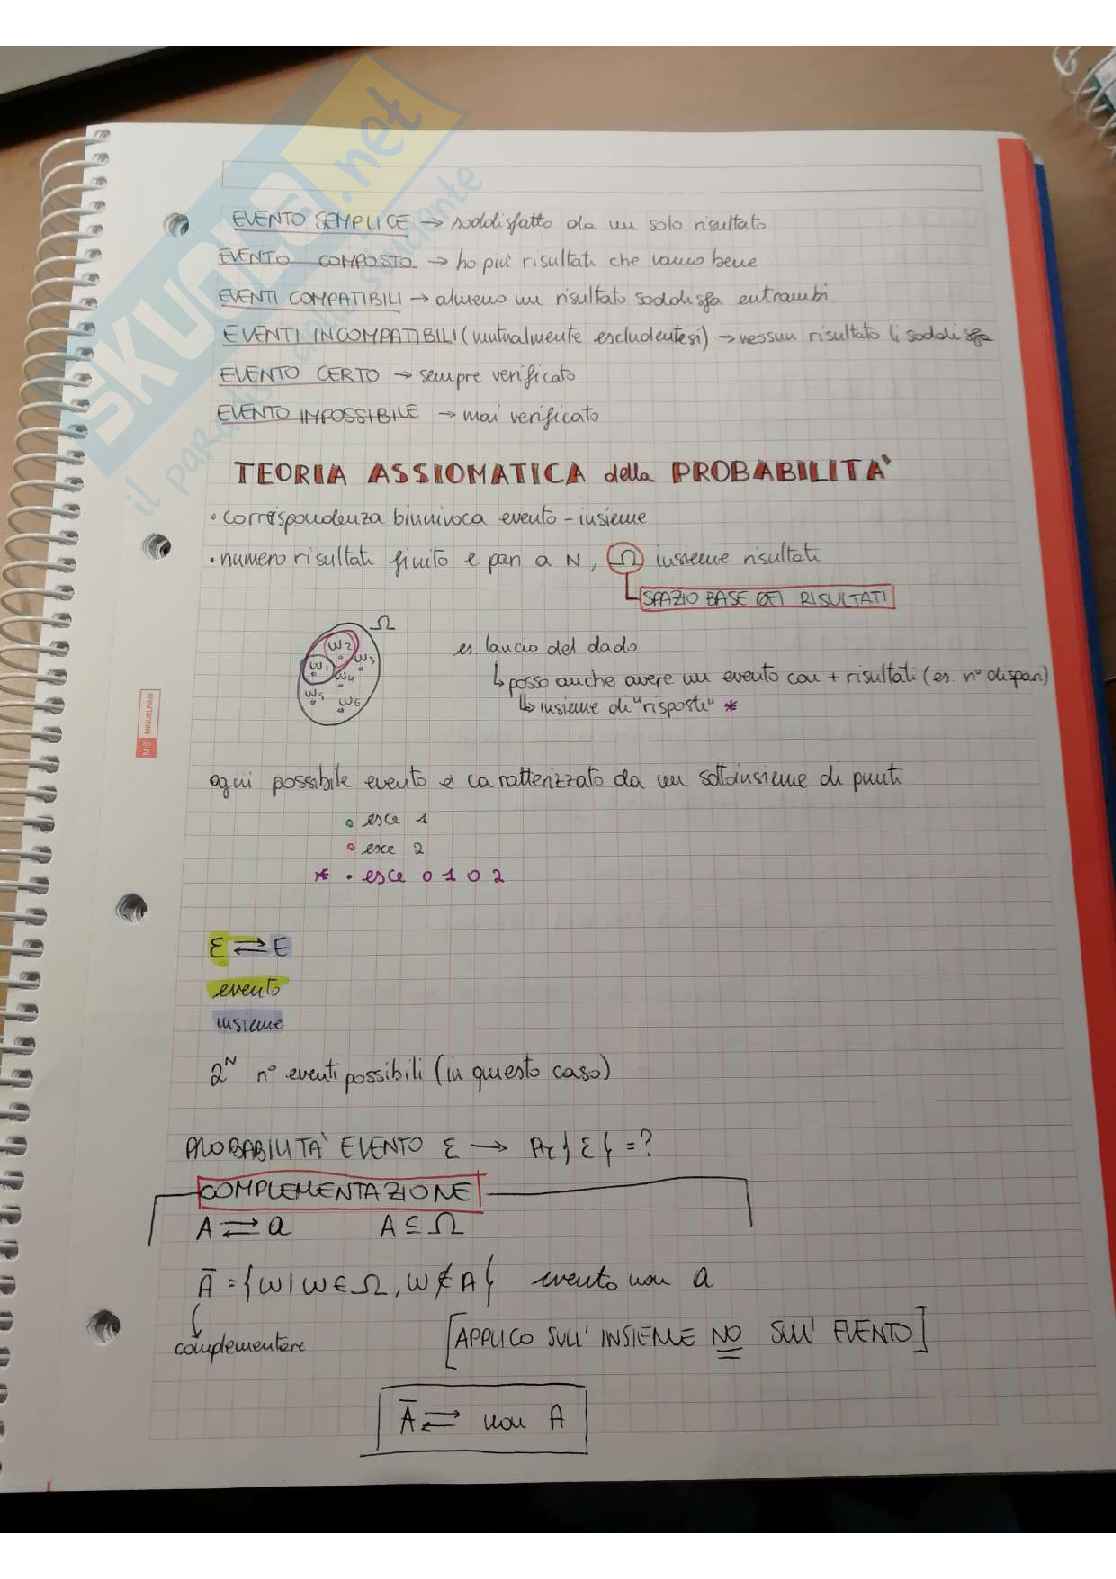 EVENTO SEMPLICE → soddisfatto da un solo risultato
EVENTO COMPOSTO → ho più risultati che vanno bene
EVENTI COMPATIBILI → almeno un risultato soddisfa entrambi
EVENTI INCOMPATIBILI (mutualmente escludentesi) → nessun risultato li soddisfa
EVENTO CERTO → sempre verificato
EVENTO IMPOSSIBILE → mai verificato
TEORIA ASSIOMATICA della PROBABILITA'
• corrispondenza biunivoca evento - insieme
• numero risultati finito e pari a N, Ω insieme risultati
SPAZIO BASE DEI RISULTATI
Ω
ω2
ω1 ω3
ω4
ω5 ω6
es lancio del dado
↳ posso anche avere un evento con + risultati (es. n° dispari)
↳ insieme di "risposte" *
ogni possibile evento è caratterizzato da un sottoinsieme di punti
• esce 1
• esce 2
* • esce o 1 o 2
ε ⇄ E
evento
insieme
2^N n° eventi possibili (in questo caso)
PROBABILITA' EVENTO ε → Pr{ε} = ?
COMPLEMENTAZIONE
A ⇄ a A ⊆ Ω
Ā = {ω | ω ∈ Ω, ω ∉ A} evento non a
complementare
[APPLICO SULL'INSIEME NO SULL'EVENTO]
Ā ⇄ non A
SKUOLA.net
il paradiso dello studente